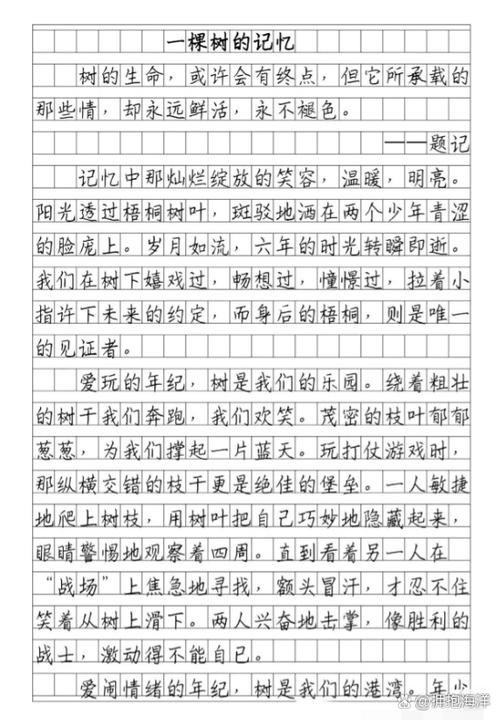 一棵树的记忆
树的生命，或许会有终点，但它所承载的
那些情，却永远鲜活，永不褪色。
——题记
记忆中那灿烂绽放的笑容，温暖，明亮。
阳光透过梧桐树叶，斑驳地洒在两个少年青涩
的脸庞上。岁月如流，六年的时光转瞬即逝。
我们在树下嬉戏过，畅想过，憧憬过，拉着小
指许下未来的约定，而身后的梧桐，则是唯一
的见证者。
爱玩的年纪，树是我们的乐园。绕着粗壮
的树干我们奔跑，我们欢笑。茂密的枝叶郁郁
葱葱，为我们撑起一片蓝天。玩打仗游戏时，
那纵横交错的枝干更是绝佳的堡垒。一人敏捷
地爬上树枝，用树叶把自己巧妙地隐藏起来，
眼睛警惕地观察着四周。直到看着另一人在
“战场”上焦急地寻找，额头冒汗，才忍不住
笑着从树上滑下。两人兴奋地击掌，像胜利的
战士，激动得不能自已。
爱闹情绪的年纪，树是我们的港湾。年少
@拥抱海洋